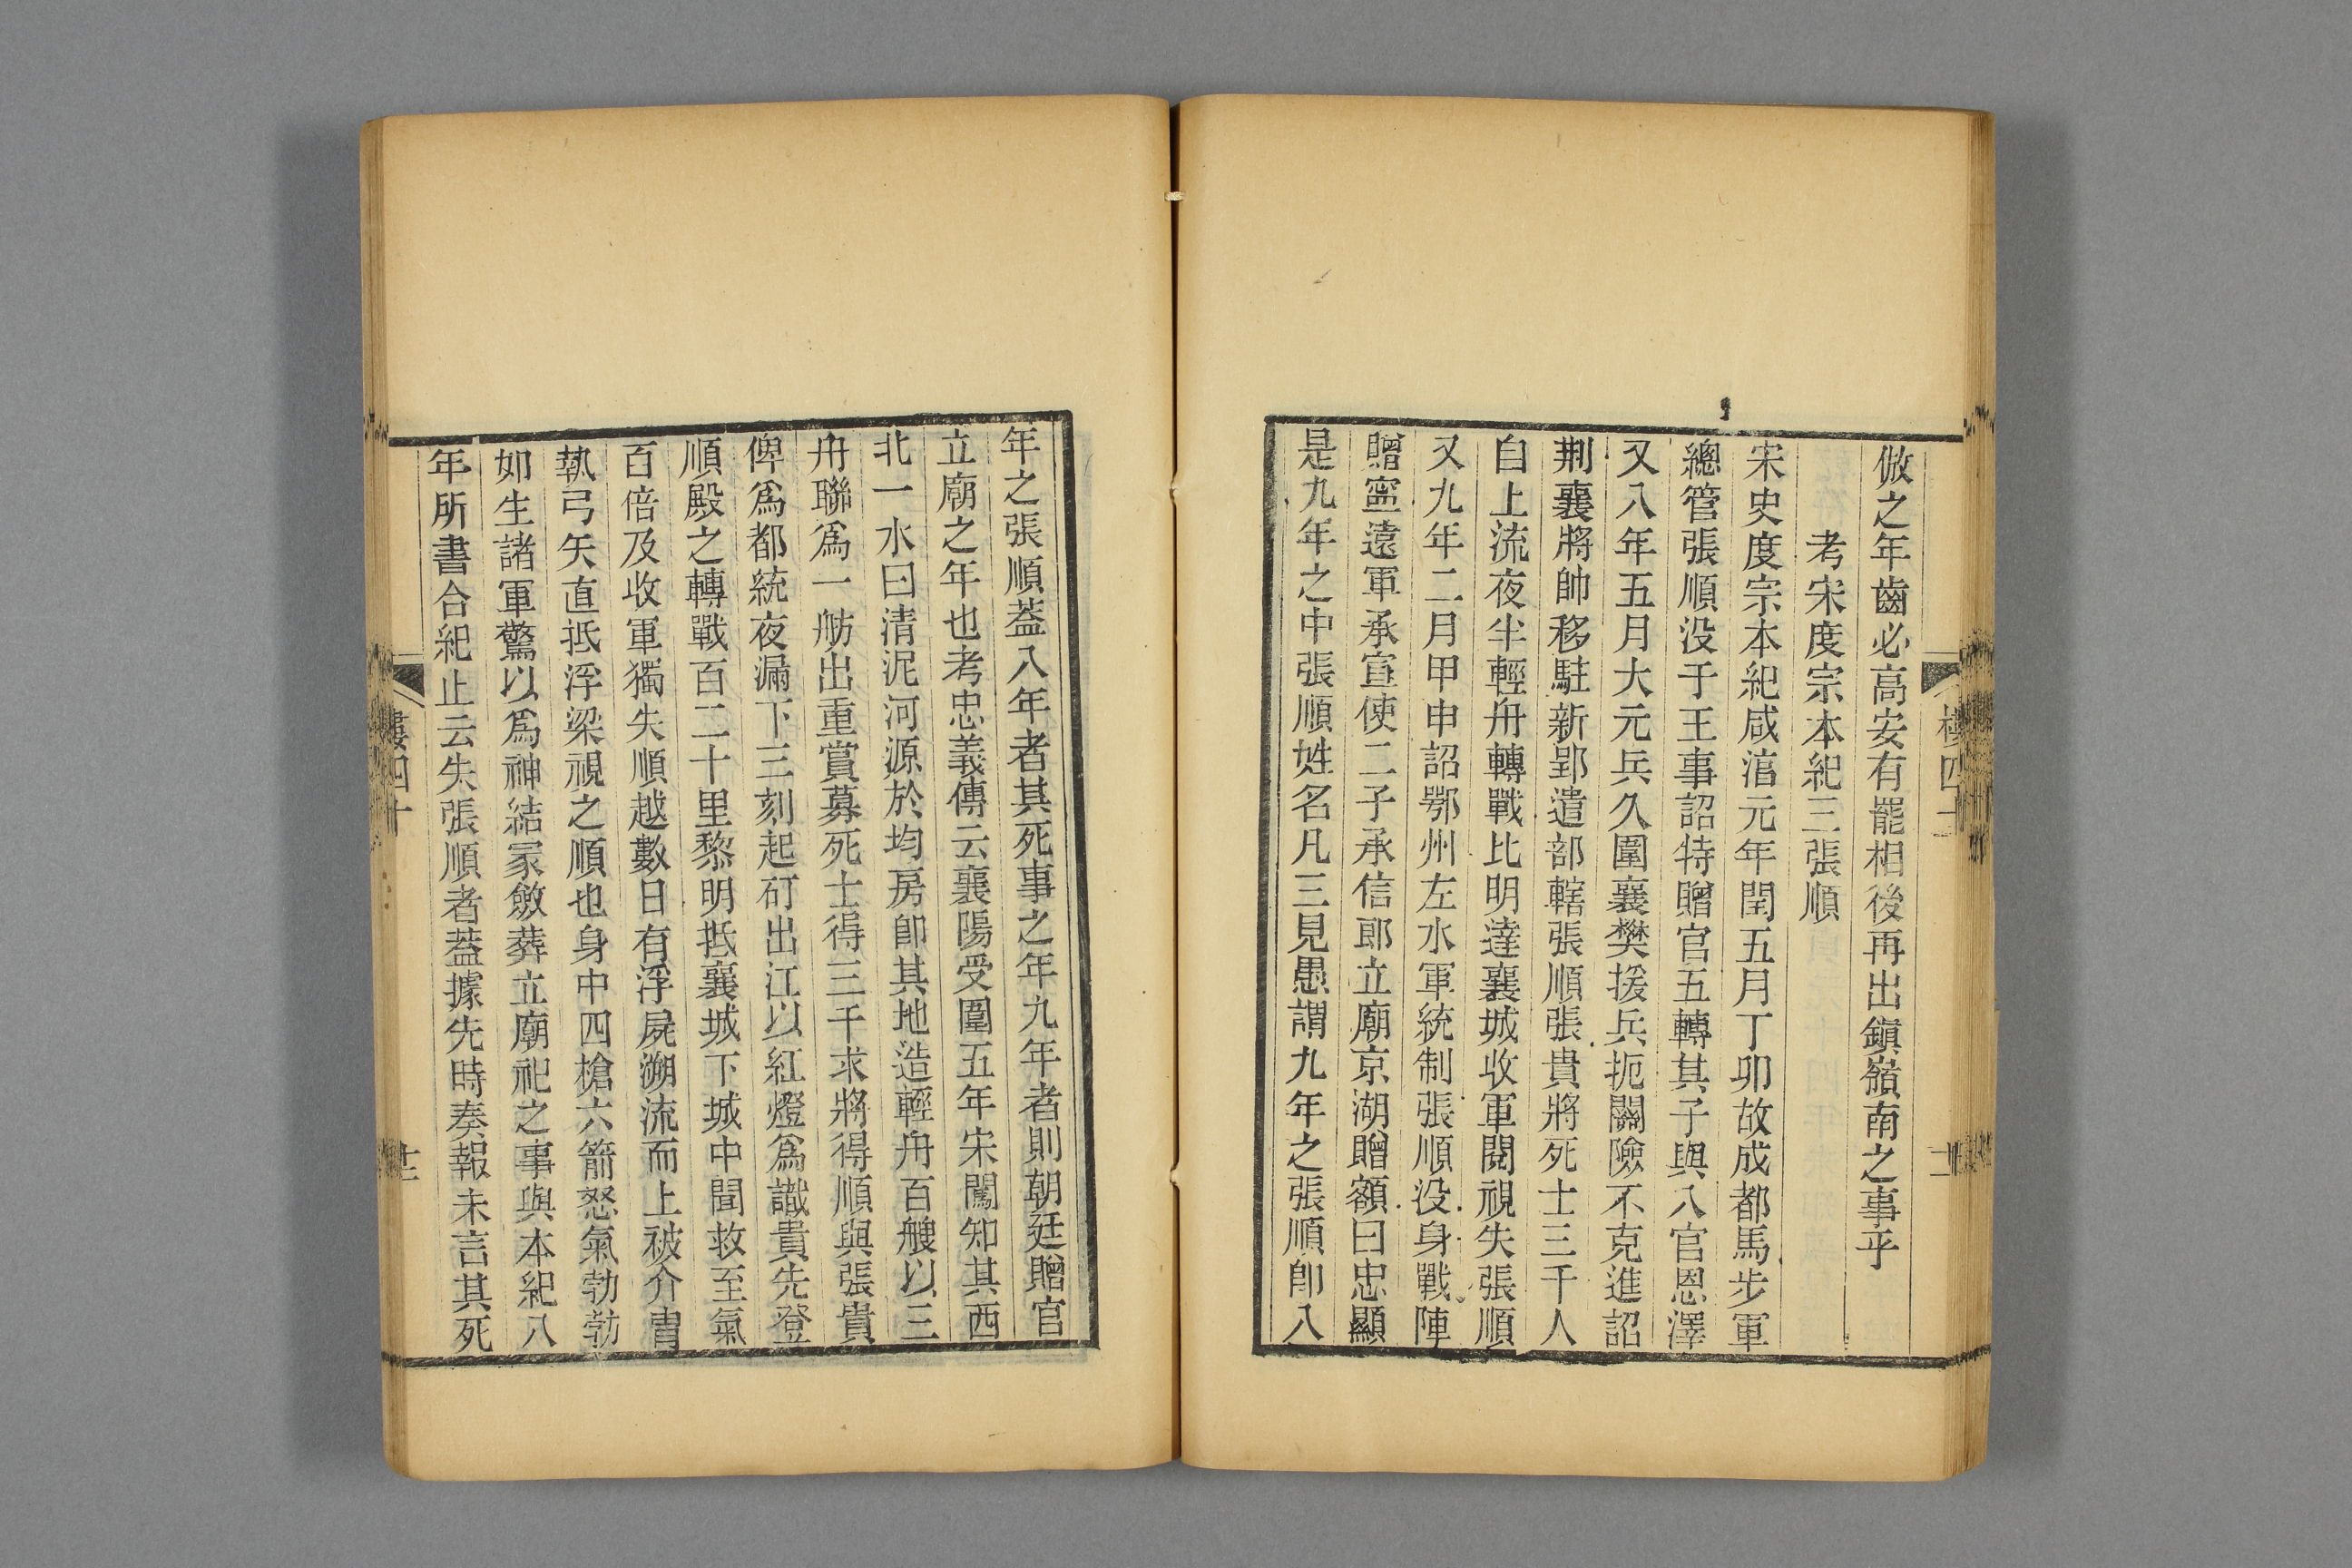 倣之年齒必高安有罷相後再出鎮嶺南之事乎
考宋度宗本紀三張順
宋史度宗本紀咸淳元年閏五月丁卯故成都馬步軍
總管張順没于王事詔特贈官五轉其子與八官恩澤
又八年五月大元兵久圍襄樊援兵扼關險不克進詔
荆襄將帥移駐新郢遣部轄張順張貴將死士三千人
自上流夜半輕舟轉戰比明達襄城收軍閱視失張順
又九年二月甲申詔鄂州左水軍統制張順没身戰陣
贈寧遠軍承宣使二子承信郎立廟京湖贈額曰忠顯
是九年之中張順姓名凡三見愚謂九年之張順卽八
年之張順蓋八年者其死事之年九年者則朝廷贈官
立廟之年也考忠義傳云襄陽受圍五年宋闖知其西
北一水曰清泥河源於均房卽其地造輕舟百艘以三
舟聯爲一舫出重賞募死士得三千求將得順與張貴
俾爲都統夜漏下三刻起矴出江以紅燈爲識貴先登
順殿之轉戰百二十里黎明抵襄城下城中聞救至氣
百倍及收軍獨失順越數日有浮屍溯流而上被介冑
執弓矢直抵浮梁視之順也身中四槍六箭怒氣勃勃
如生諸軍驚以爲神結冢斂葬立廟祀之事與本紀八
年所書合紀止云失張順者蓋據先時奏報未言其死
樓四十